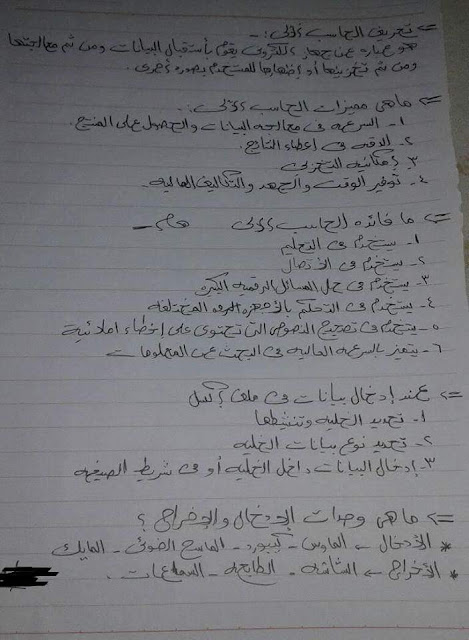 => تعريف الحاسب الآلى :-
هو عباره عن جهاز الكترونى يقوم بأستقبال البيانات ومن ثم معالجتها
ومن ثم تخزينها أو إظهارها للمستخدم بصوره أخرى.
=> ما هى مميزات الحاسب الآلى :-
١- السرعه فى معالجه البيانات والحصول على المنتج.
٢- الدقه فى اعطاء النتايج.
٣- إمكانيه التخزين
٤- توفير الوقت والجهد والتكاليف الماليه.
=> ما فائده الحاسب الآلى هام -
١- يستخدم فى التعليم
٢- يستخدم فى الأتصال
٣- يستخدم فى حل المسائل الرقميه
٤- يستخدم فى التحكم بالأجهزه المختلفه
٥- يستخدم فى تصحيح النصوص التى تحتوى على إخطاء املائية
٦- يتميز بالسرعه العاليه فى البحث عن المعلومات
=> عند إدخال بيانات فى ملف إكسل
١- تحديد الخليه وتنشيطها
٢- تحديد نوع بيانات الخليه
٣- إدخال البيانات داخل الخليه أو فى شريط الصيغه
=> ما هى وحدات الإدخال والإخراج ؟
* الأدخال ← الماوس - كيبورد - الماسح الضوئى - المايك
* الأخراج ← الشاشه - الطابعه - السماعات .